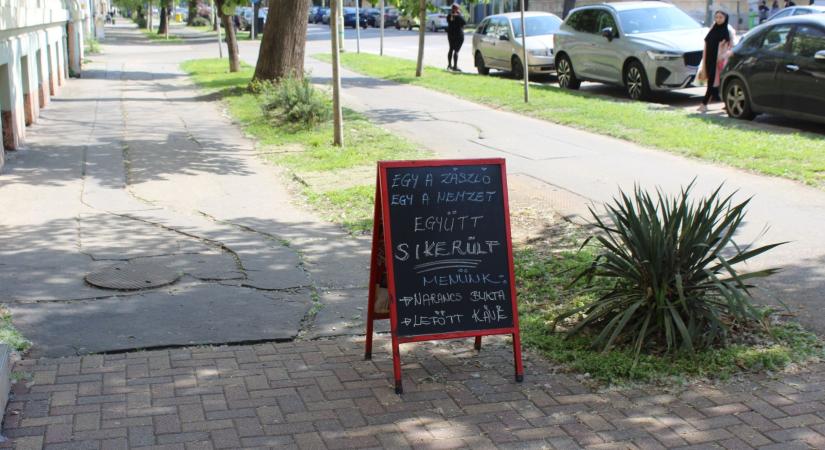 EGY A ZÁSZLÓ
EGY A NEMZET
EGYÜTT
SIKERÜLT
MENÜNK:
→NARANCS BUKTA
→LEFŐTT KÁVÉ